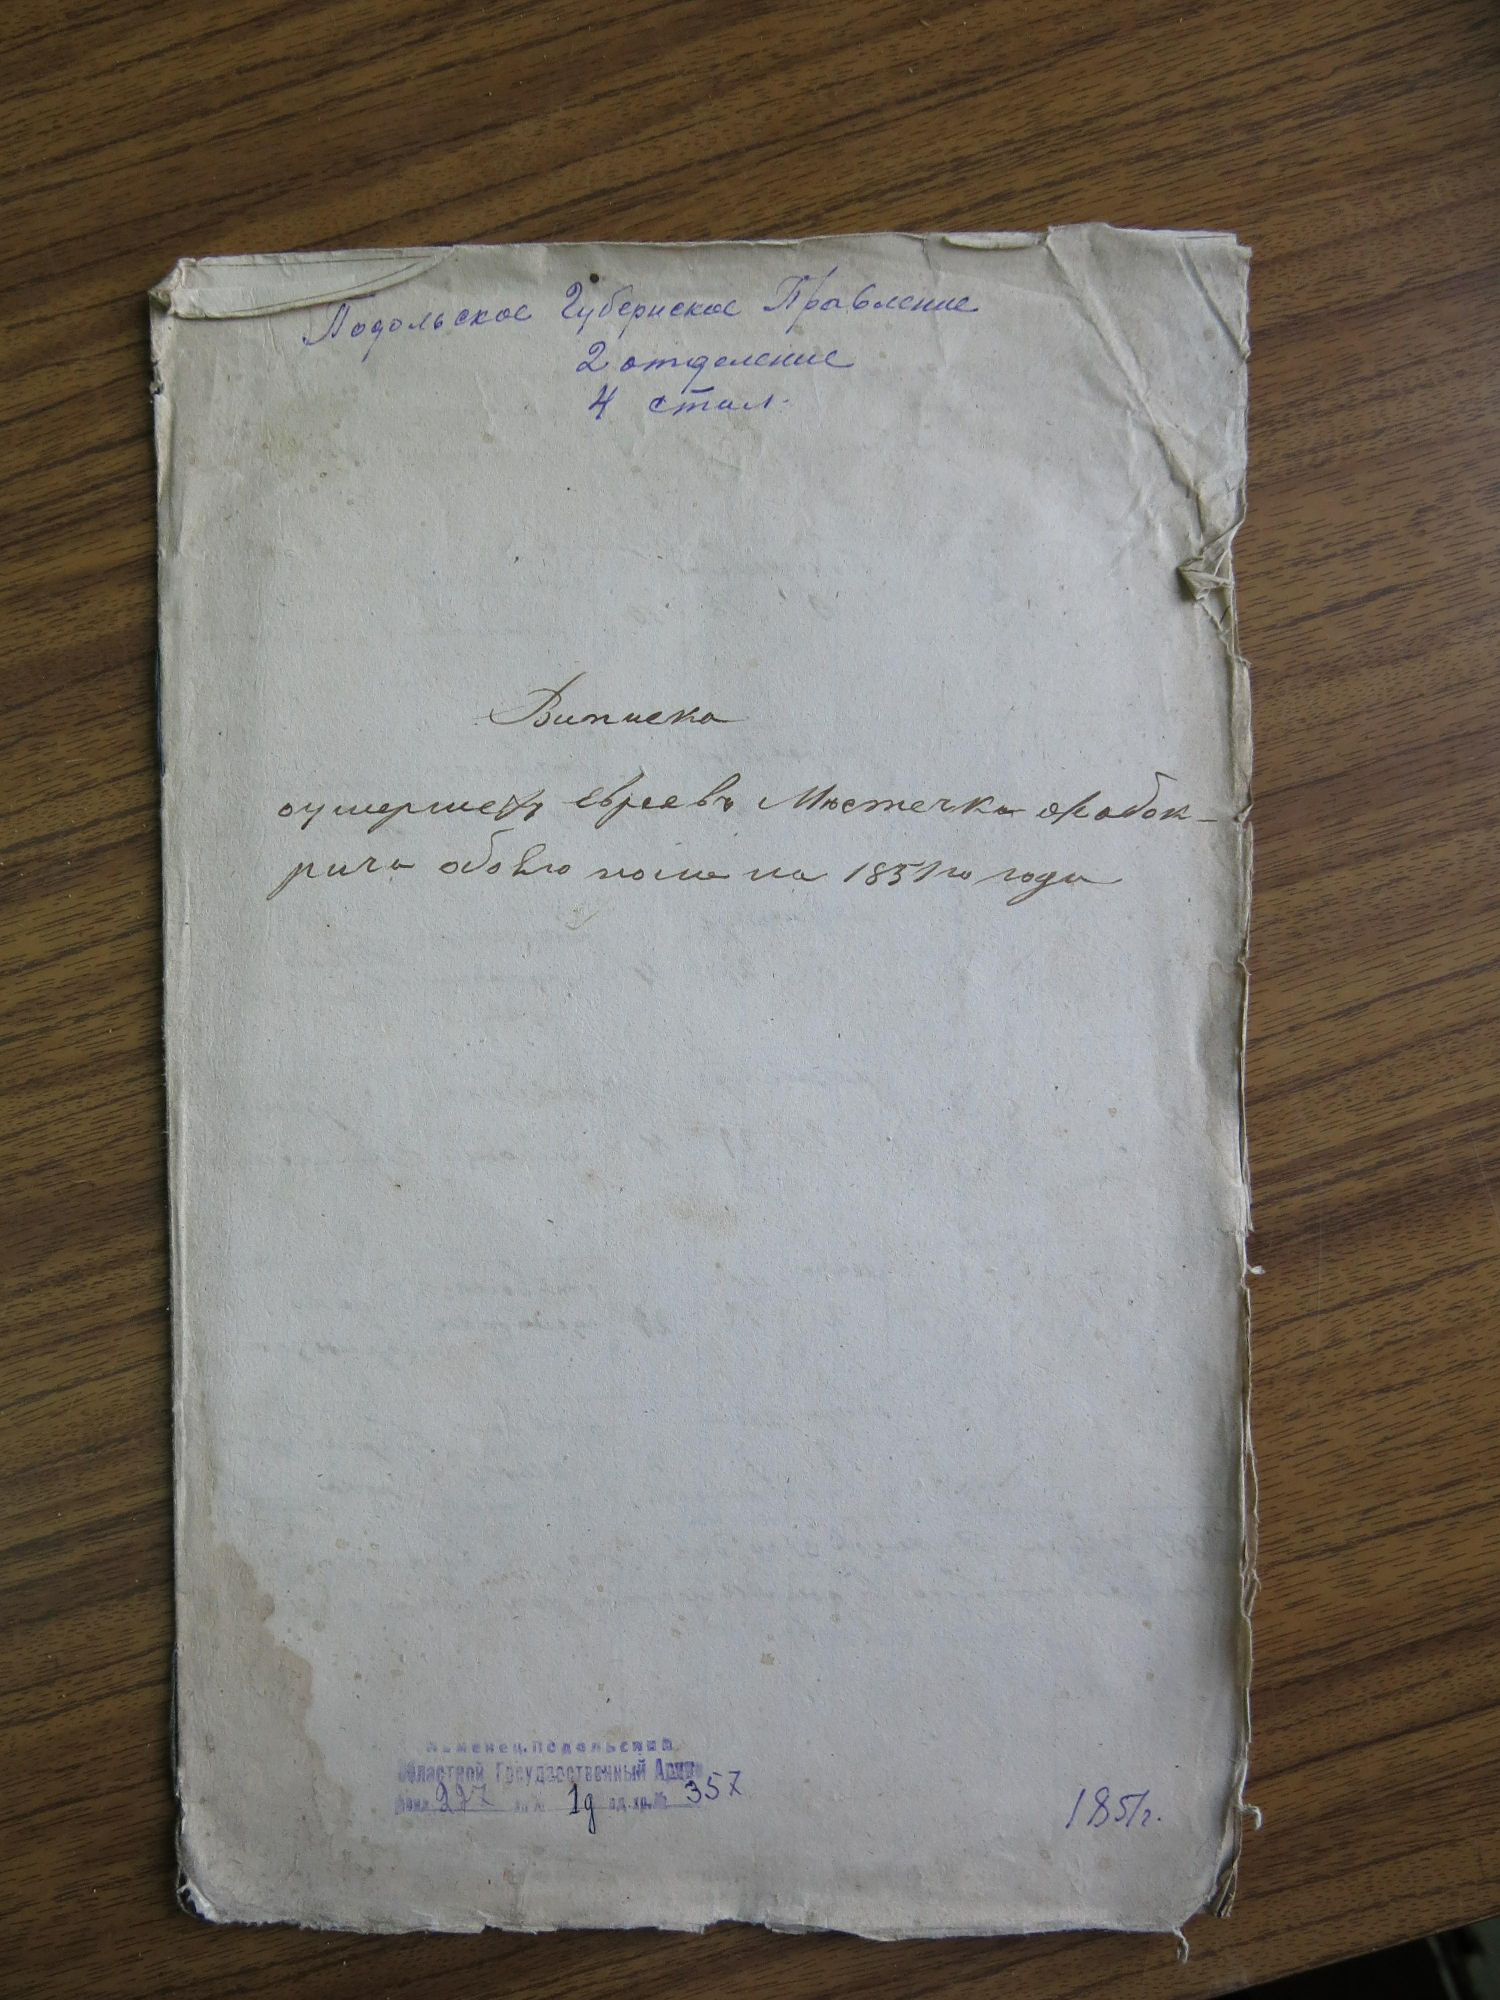 Подольское Губернское Правление
2 отделение
4 стол.
Выписка
оумершехъ евреевъ Мѣстечка Жабок-
рича обоего пола на 1851го года
Каменец-Подольский
Областной Государственный Архив
Фонд 227 оп. № 1д ед.хр.№ 357
1851г.